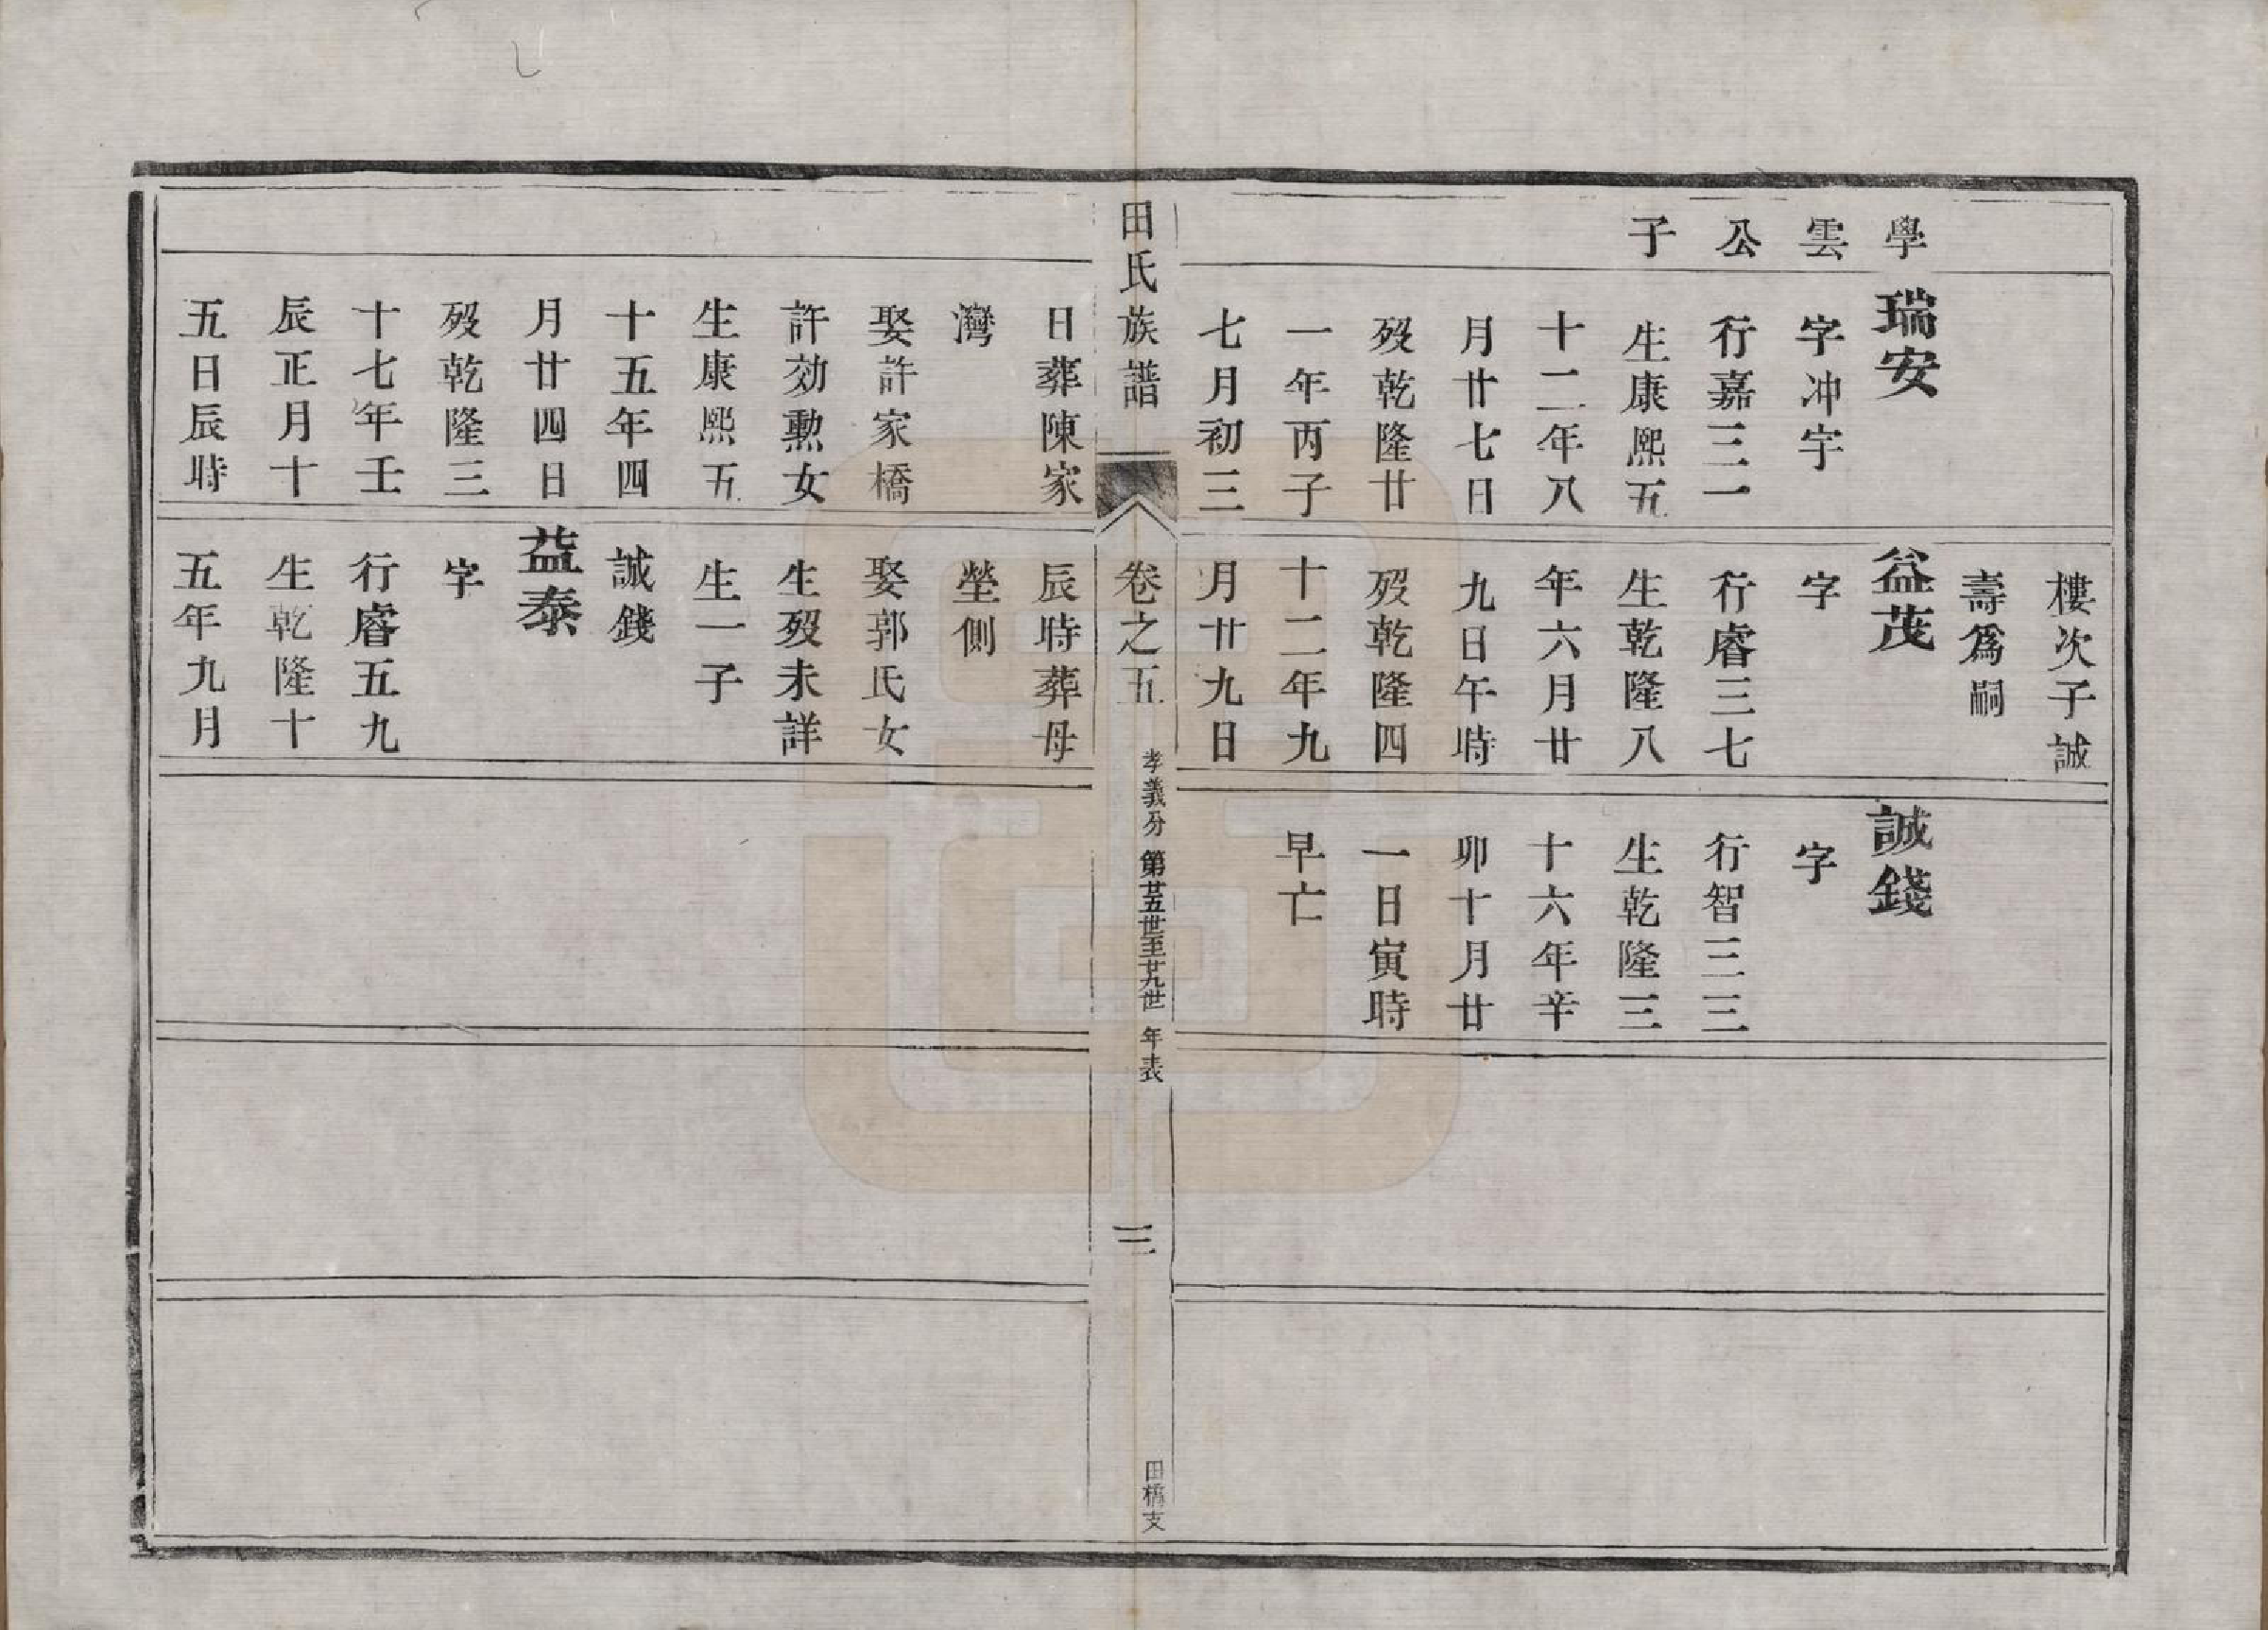 學
雲
公
子
瑞安
字冲宇
行嘉三一
生康熙五
十二年八
月廿七日
歿乾隆廿
一年丙子
七月初三
樓次子誠
壽爲嗣
益茂
字
行睿三七
生乾隆八
年六月廿
九日午時
歿乾隆四
十二年九
月廿九日
誠錢
字
行智三三
生乾隆三
十六年辛
卯十月廿
一日寅時
早亡
田氏族譜
卷之五
孝義分
第廿五世至廿九世
年表
三
田橋支
日葬陳家
灣
娶許家橋
許効勲女
生康熙五
十五年四
月廿四日
歿乾隆三
十七年壬
辰正月十
五日辰時
辰時葬母
塋側
娶郭氏女
生歿未詳
生一子
誠錢
益泰
字
行睿五九
生乾隆十
五年九月